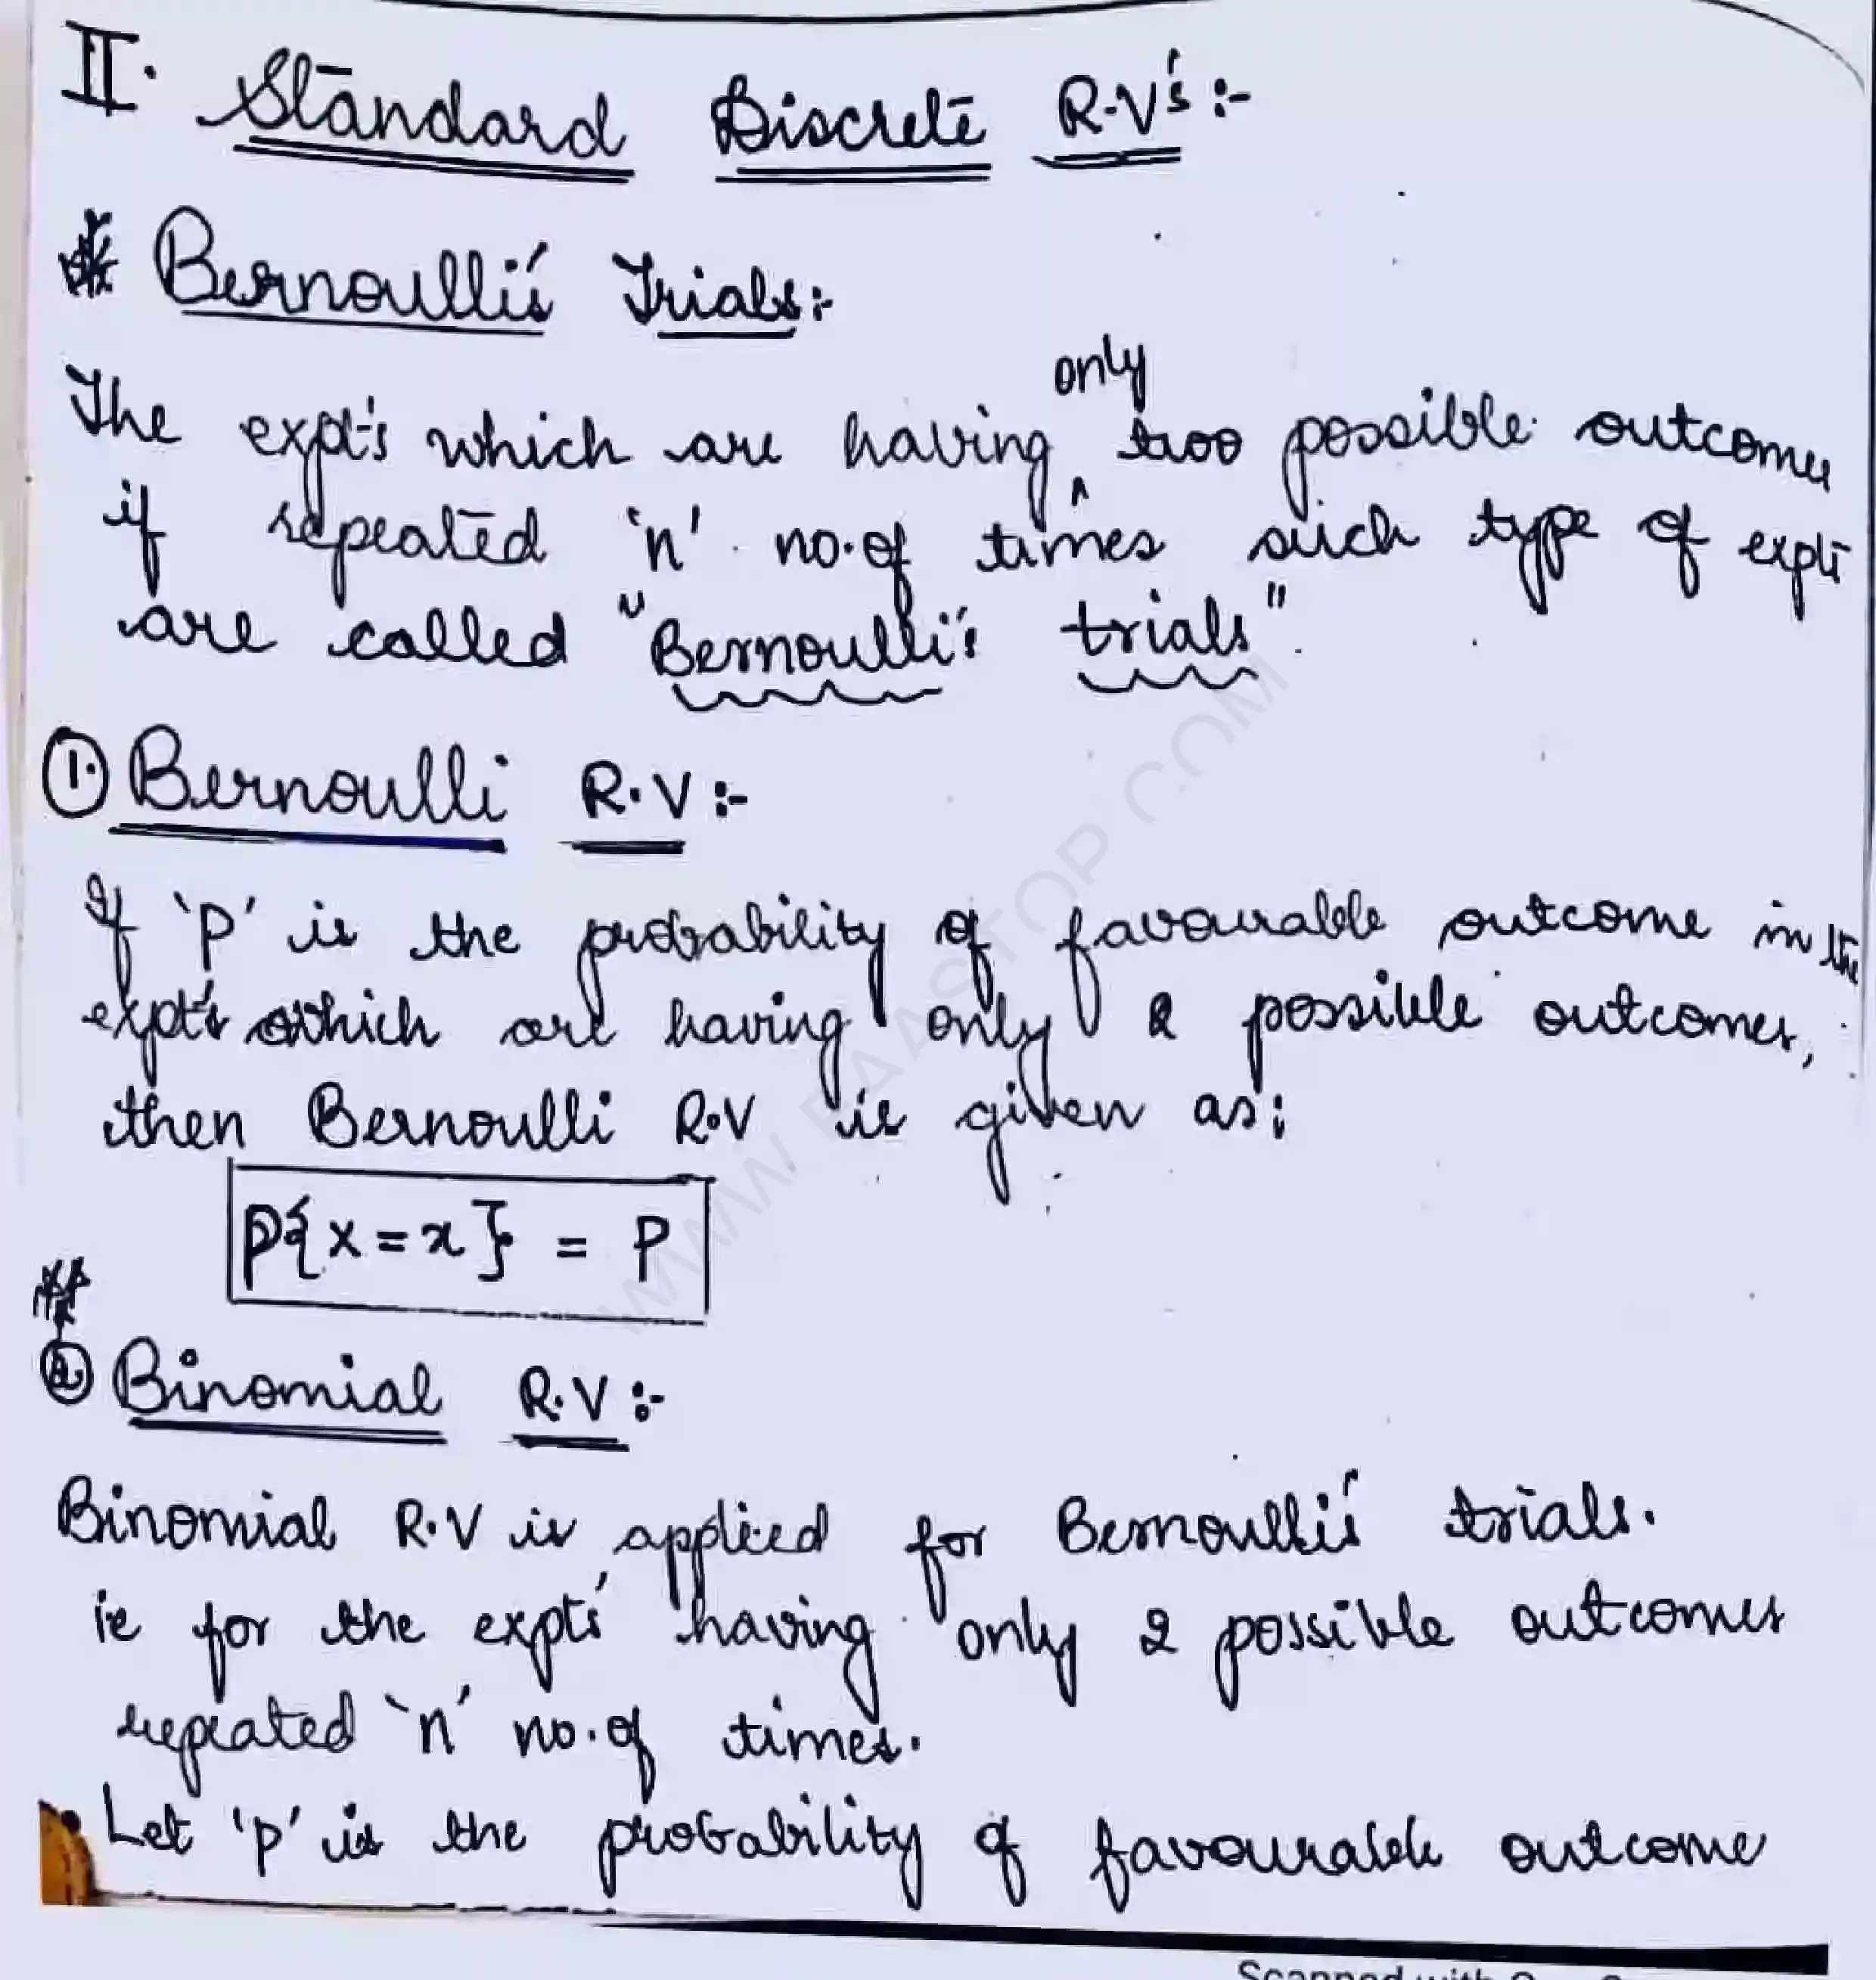 II. Standard Discrete R.V's :-
* Bernoulli's Trials:-
only
The expt's which are having ^ two possible outcomes
if repeated 'n' no.of times such type of expt
are called "Bernoulli's trials".
1. Bernoulli R.V :-
If 'P' is the probability of favourable outcome in the
expt's which are having only 2 possible outcomes,
then Bernoulli R.V is given as:
P{X=x} = P
**
2 Binomial R.V :-
Binomial R.V is applied for Bernoulli's trials.
ie for the expts' having only 2 possible outcomes
repeated 'n' no.of times.
Let 'p' is the probability of favourable outcome
WWW.FAASTOP.COM
Scanned with